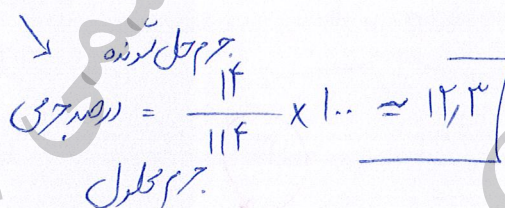 جرم حل شونده
درصد جرمی = ۱۴ / ۱۱۴ × ۱۰۰ ≈ ۱۲٫۳
جرم محلول